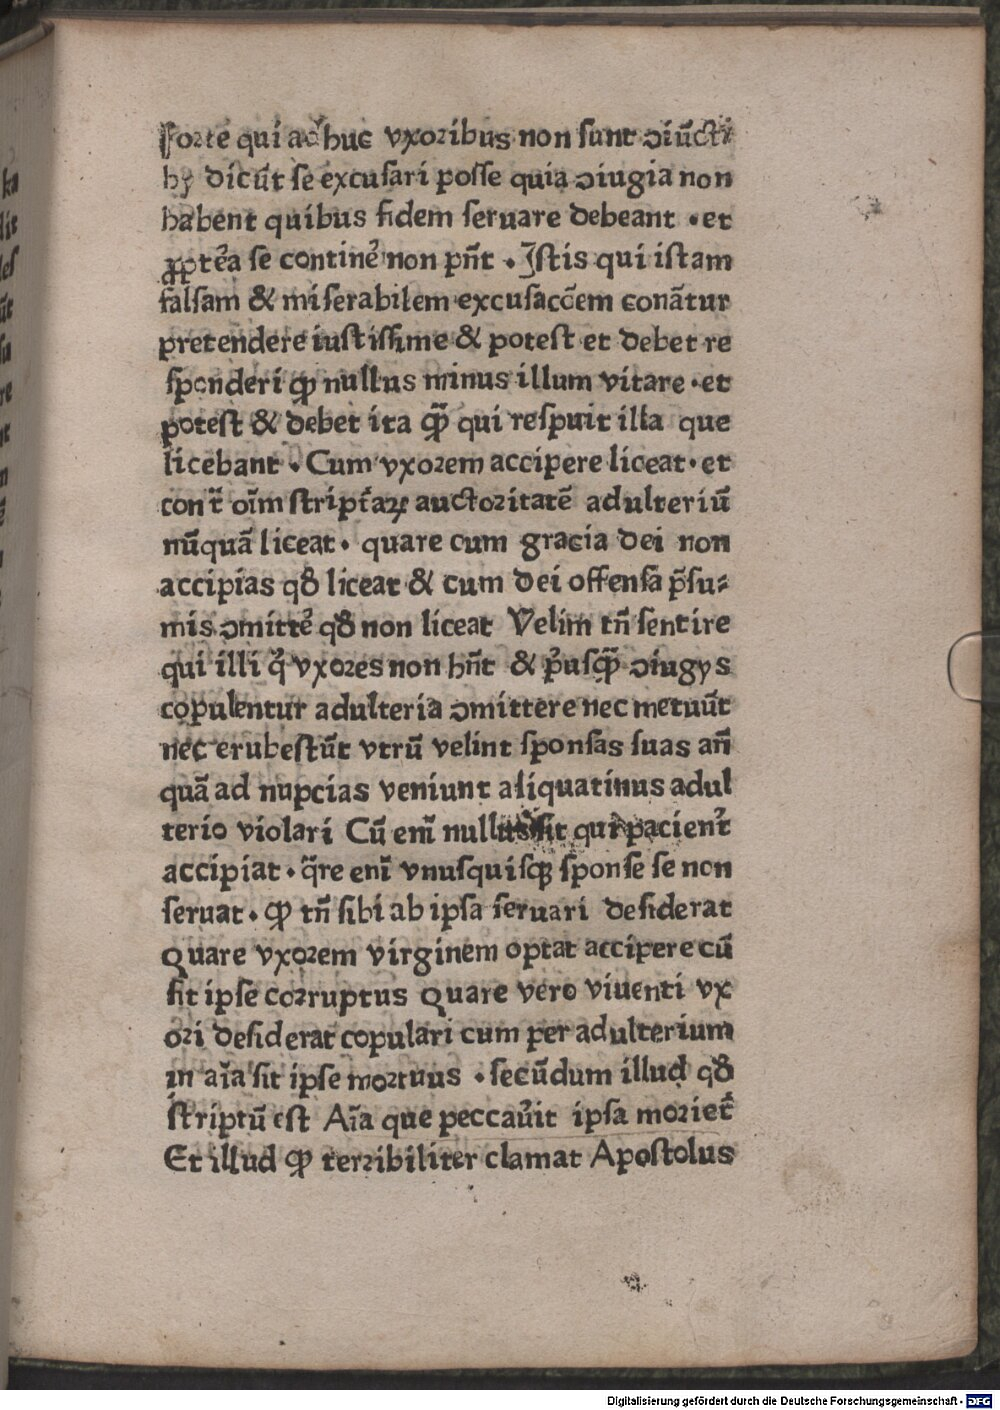 forte qui adhuc vxoribus non sunt ↄiũcti
hÿ dicũt se excusari posse quia ↄiugia non
habent quibus fidem seruare debeant · et
ꝓpteã se continẽ non pñt · Istis qui istam
falsam & miserabilem excusaccẽm conãtur
pretendere iustissime & potest et debet re
sponderi ꝙ nullus minus illum vitare · et
potest & debet ita ꝙ̃ qui respuit illa que
licebant · Cum vxorem accipere liceat · et
cont̃ oĩm scriptãꝝ auctoritatẽ adulteriũ
nũquã liceat · quare cum gracia dei non
accipias qđ liceat & cum dei offensa p̃su⸗
mis ↄmittẽ qđ non liceat Velim tñ sentire
qui illi q̃ vxores non hñt & p̃usꝙ̃ ↄiugÿs
copulentur adulteria ↄmittere nec metuũt
nec erubescũt vtrũ velint sponsas suas añ
quã ad nupcias veniunt aliquatinus adul
terio violari Cũ enĩ nullus sit qui pacient̾
accipiat · q̃re enĩ vnusquisqꝫ sponse se non
seruat · ꝙ tñ sibi ab ipsa seruari desiderat
Quare vxorem virginem optat accipere cũ
sit ipse corruptus Quare vero viuenti vx
ori desiderat copulari cum per adulterium
in aĩa sit ipse mortuus · secũdum illud qđ
scriptũ est Aĩa que peccau̾it ipsa moriet̃
Et illud ꝙ terribiliter clamat Apostolus
Digitalisierung gefördert durch die Deutsche Forschungsgemeinschaft · DFG